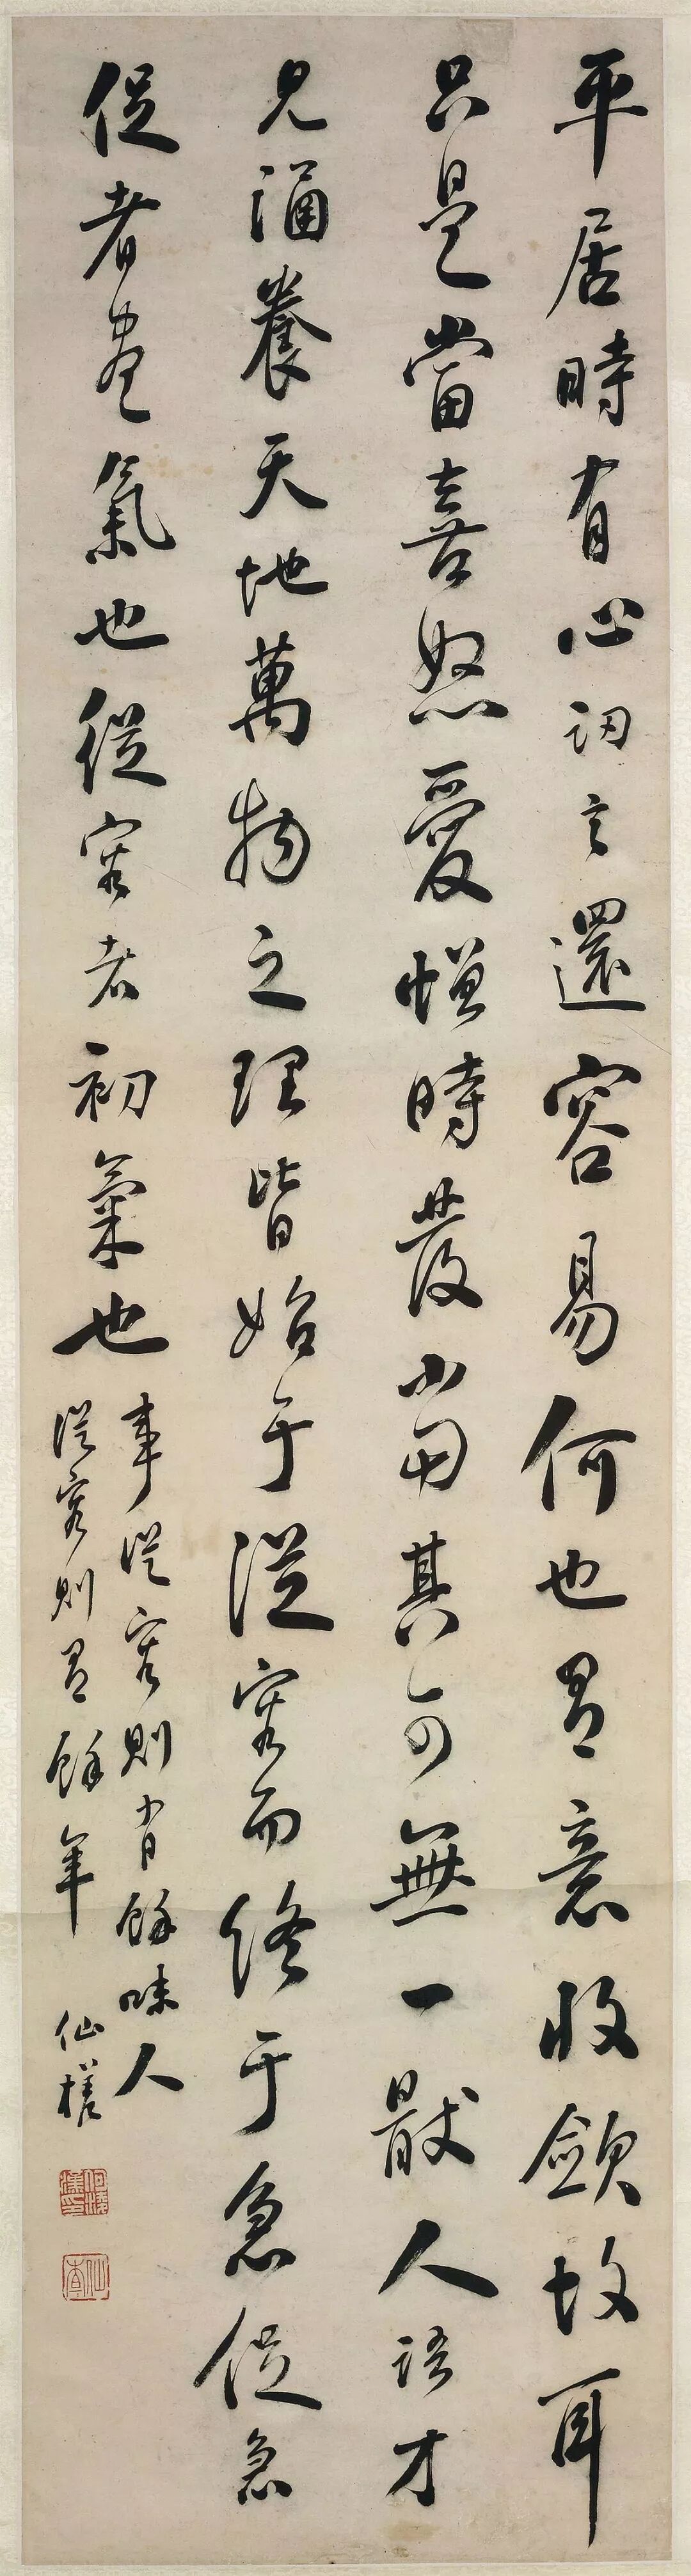 平居時有心訒言還容易何也有意收斂故耳
只是當喜怒愛憎時發當其可無一厭人語才
見涵養天地萬物之理皆始于從容而終于急促急
促者盡氣也從容者初氣也
事從容則有餘味人
從容則有餘年
仙槎